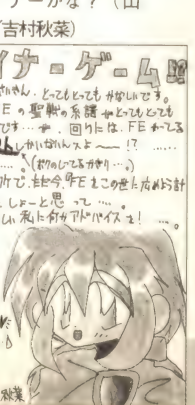 ナーかな？（山
（吉村秋菜）
イナーゲーム!!
さん、とってもとってもかなしいです。
FEの聖戦の系譜がとってもとっても
です…が、回りには、FEやってる
しかいないんスよ〜〜!?
（ボクのしってるかぎり…。）
ワケで、ただ今、『FEをこの世に広めよう計
しよーと思って……。
しい私に何かアドバイスを!
秋菜